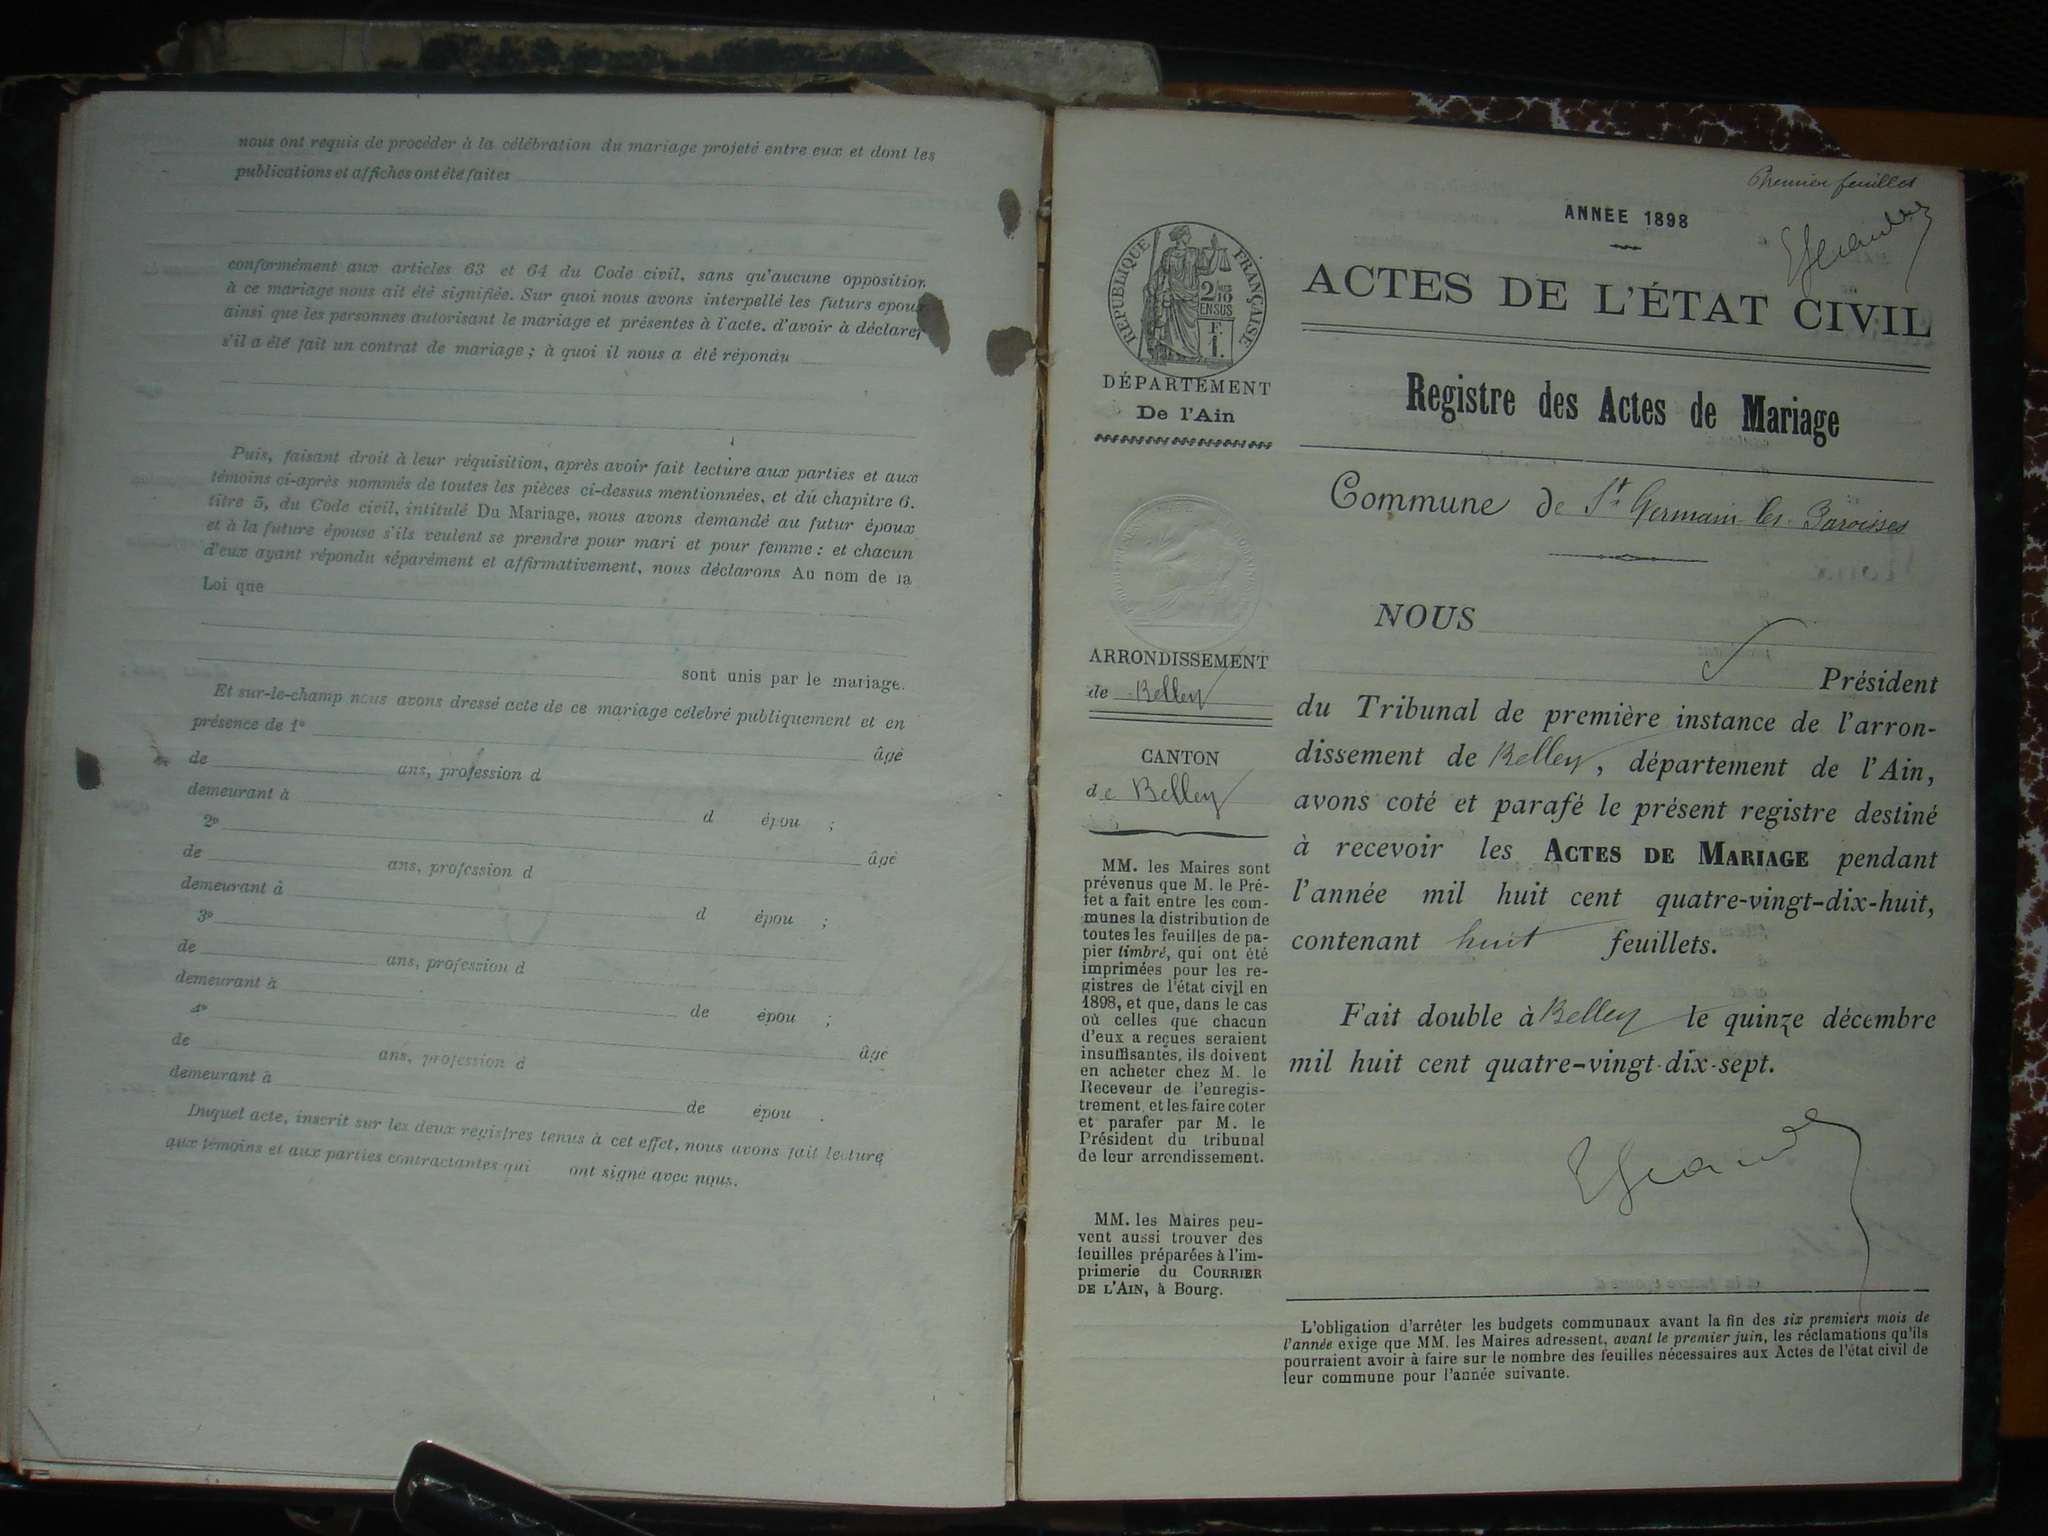 nous ont requis de procéder à la célébration du mariage projeté entre eux et dont les
publications et affiches ont été faites
conformément aux articles 63 et 64 du Code civil, sans qu'aucune opposition
à ce mariage nous ait été signifiée. Sur quoi nous avons interpellé les futurs epoux
ainsi que les personnes autorisant le mariage et présentes à l'acte, d'avoir à déclarer
s'il a été fait un contrat de mariage ; à quoi il nous a été répondu
Puis, faisant droit à leur réquisition, après avoir fait lecture aux parties et aux
témoins ci-après nommés de toutes les pièces ci-dessus mentionnées, et du chapitre 6.
titre 5, du Code civil, intitulé Du Mariage, nous avons demandé au futur époux
et à la future épouse s'ils veulent se prendre pour mari et pour femme : et chacun
d'eux ayant répondu séparément et affirmativement, nous déclarons Au nom de la
Loi que
sont unis par le mariage.
Et sur-le-champ nous avons dressé acte de ce mariage célébré publiquement et en
présence de 1º
âgé
de ans, profession d
demeurant à d épou ;
2º âgé
de ans, profession d
demeurant à d épou ;
3º
de ans, profession d
demeurant à de épou ;
4º âgé
de ans, profession d
demeurant à de épou .
Duquel acte, inscrit sur les deux registres tenus à cet effet, nous avons fait lecture
aux témoins et aux parties contractantes qui ont signé avec nous.
Premier feuillet
ANNÉE 1898
ACTES DE L'ÉTAT CIVIL
Registre des Actes de Mariage
Commune de St Germain-les-Paroisses
RÉPUBLIQUE FRANÇAISE
2/10 EN SUS
1 F.
DÉPARTEMENT
De l'Ain
ARRONDISSEMENT
de Belley
CANTON
de Belley
MM. les Maires sont
prévenus que M. le Pré-
fet a fait entre les com-
munes la distribution de
toutes les feuilles de pa-
pier timbré, qui ont été
imprimées pour les re-
gistres de l'état civil en
1898, et que, dans le cas
où celles que chacun
d'eux a reçues seraient
insuffisantes, ils doivent
en acheter chez M. le
Receveur de l'enregis-
trement, et les faire coter
et parafer par M. le
Président du tribunal
de leur arrondissement.
MM. les Maires peu-
vent aussi trouver des
feuilles préparées à l'im-
primerie du COURRIER
DE L'AIN, à Bourg.
NOUS
Président
du Tribunal de première instance de l'arron-
dissement de Belley, département de l'Ain,
avons coté et parafé le présent registre destiné
à recevoir les ACTES DE MARIAGE pendant
l'année mil huit cent quatre-vingt-dix-huit,
contenant huit feuillets.
Fait double à Belley le quinze décembre
mil huit cent quatre-vingt-dix-sept.
L'obligation d'arrêter les budgets communaux avant la fin des six premiers mois de
l'année exige que MM. les Maires adressent, avant le premier juin, les réclamations qu'ils
pourraient avoir à faire sur le nombre des feuilles nécessaires aux Actes de l'état civil de
leur commune pour l'année suivante.